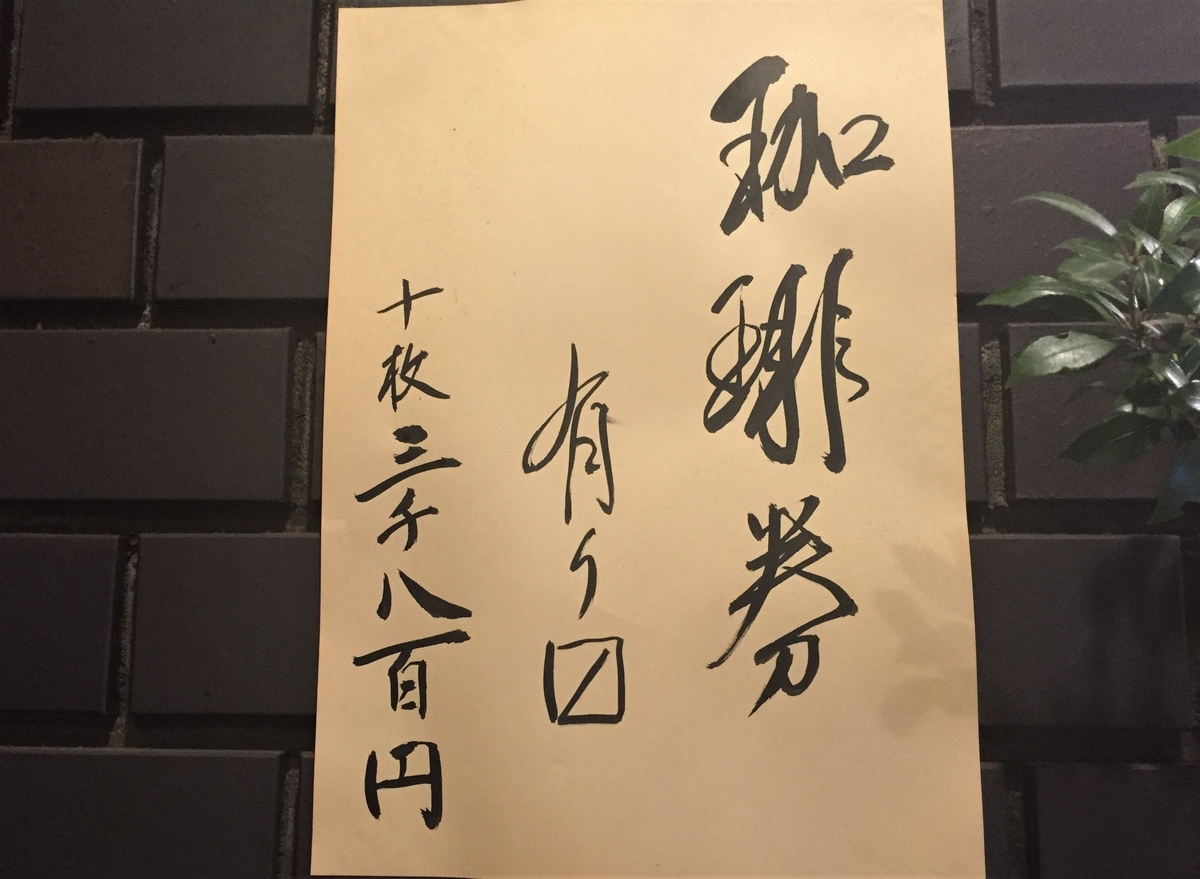 珈琲券
有り〼
十枚三千八百円